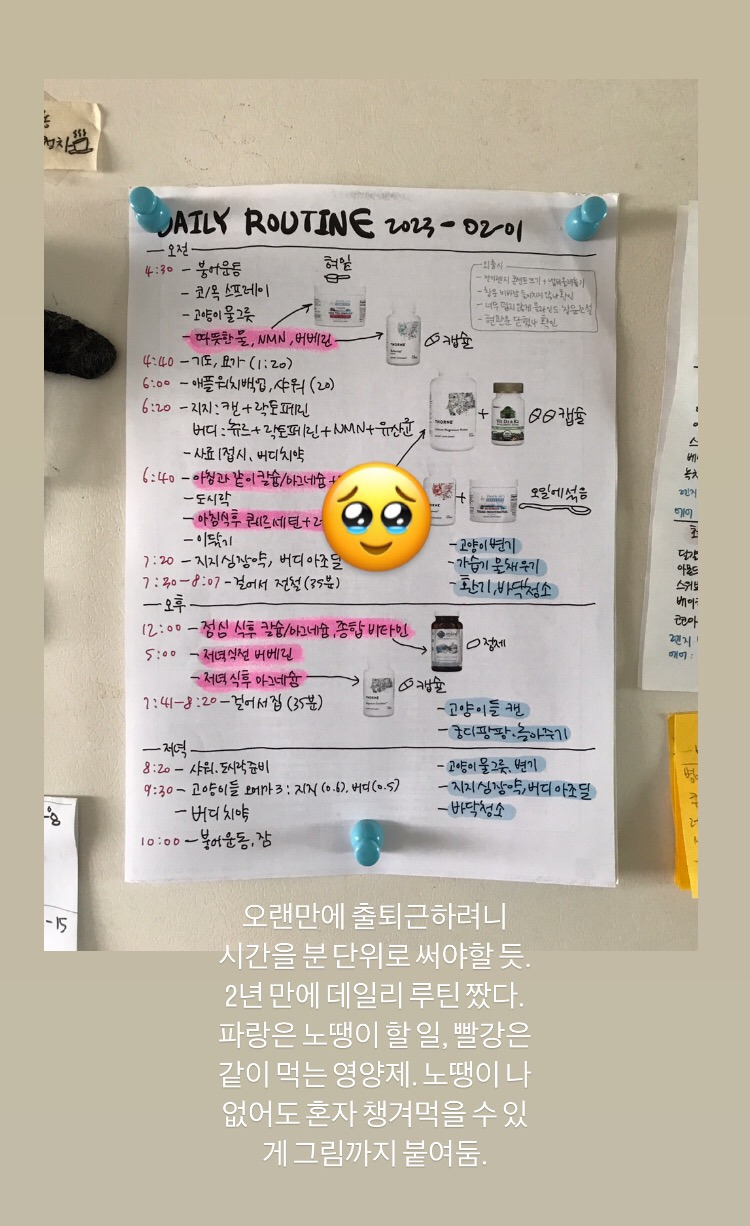 DAILY ROUTINE 2023-02-01
오전
4:30 - 붕어운동
- 코/목 스프레이
- 고양이 물그릇
- 따뜻한 물, NMN, 버베린
혀밑
캡슐
외출시
4:40 - 기도, 요가 (1:20)
6:00 - 애플워치백업, 샤워 (20)
6:20 - 지지: 캔 + 락토페린
버디: 츄르 + 락토페린 + NMN + 유산균
- 사료 1접시, 버디치약
THORNE
+
Vit D3 & K2
캡슐
6:40 - 아침과 같이 칼슘/마그네슘 +
- 도시락
- 아침식후 코퀘르세틴 +
- 이닦기
THORNE
+
오일에 섞음
7:20 - 지지심장약, 버디 아조딜
7:30-8:07 - 걸어서 전철 (35분)
- 고양이변기
- 가습기 물채우기
- 환기, 바닥청소
오후
12:00 - 점심 식후 칼슘/마그네슘, 종합 비타민
정제
5:00 - 저녁식전 버베린
- 저녁식후 마그네슘
THORNE
캡슐
7:41-8:20 - 걸어서집 (35분)
- 고양이들 캔
- 궁디팡팡·놀아주기
저녁
8:20 - 샤워, 도시락준비
9:30 - 고양이들 오메가3: 지지(0.6), 버디(0.5)
- 버디치약
10:00 - 붕어운동, 잠
- 고양이물그릇, 변기
- 지지심장약, 버디아조딜
- 바닥청소
-15
오랜만에 출퇴근하려니
시간을 분 단위로 써야할 듯.
2년 만에 데일리 루틴 짰다.
파랑은 노땡이 할 일, 빨강은
같이 먹는 영양제. 노땡이 나
없어도 혼자 챙겨먹을 수 있
게 그림까지 붙여둠.